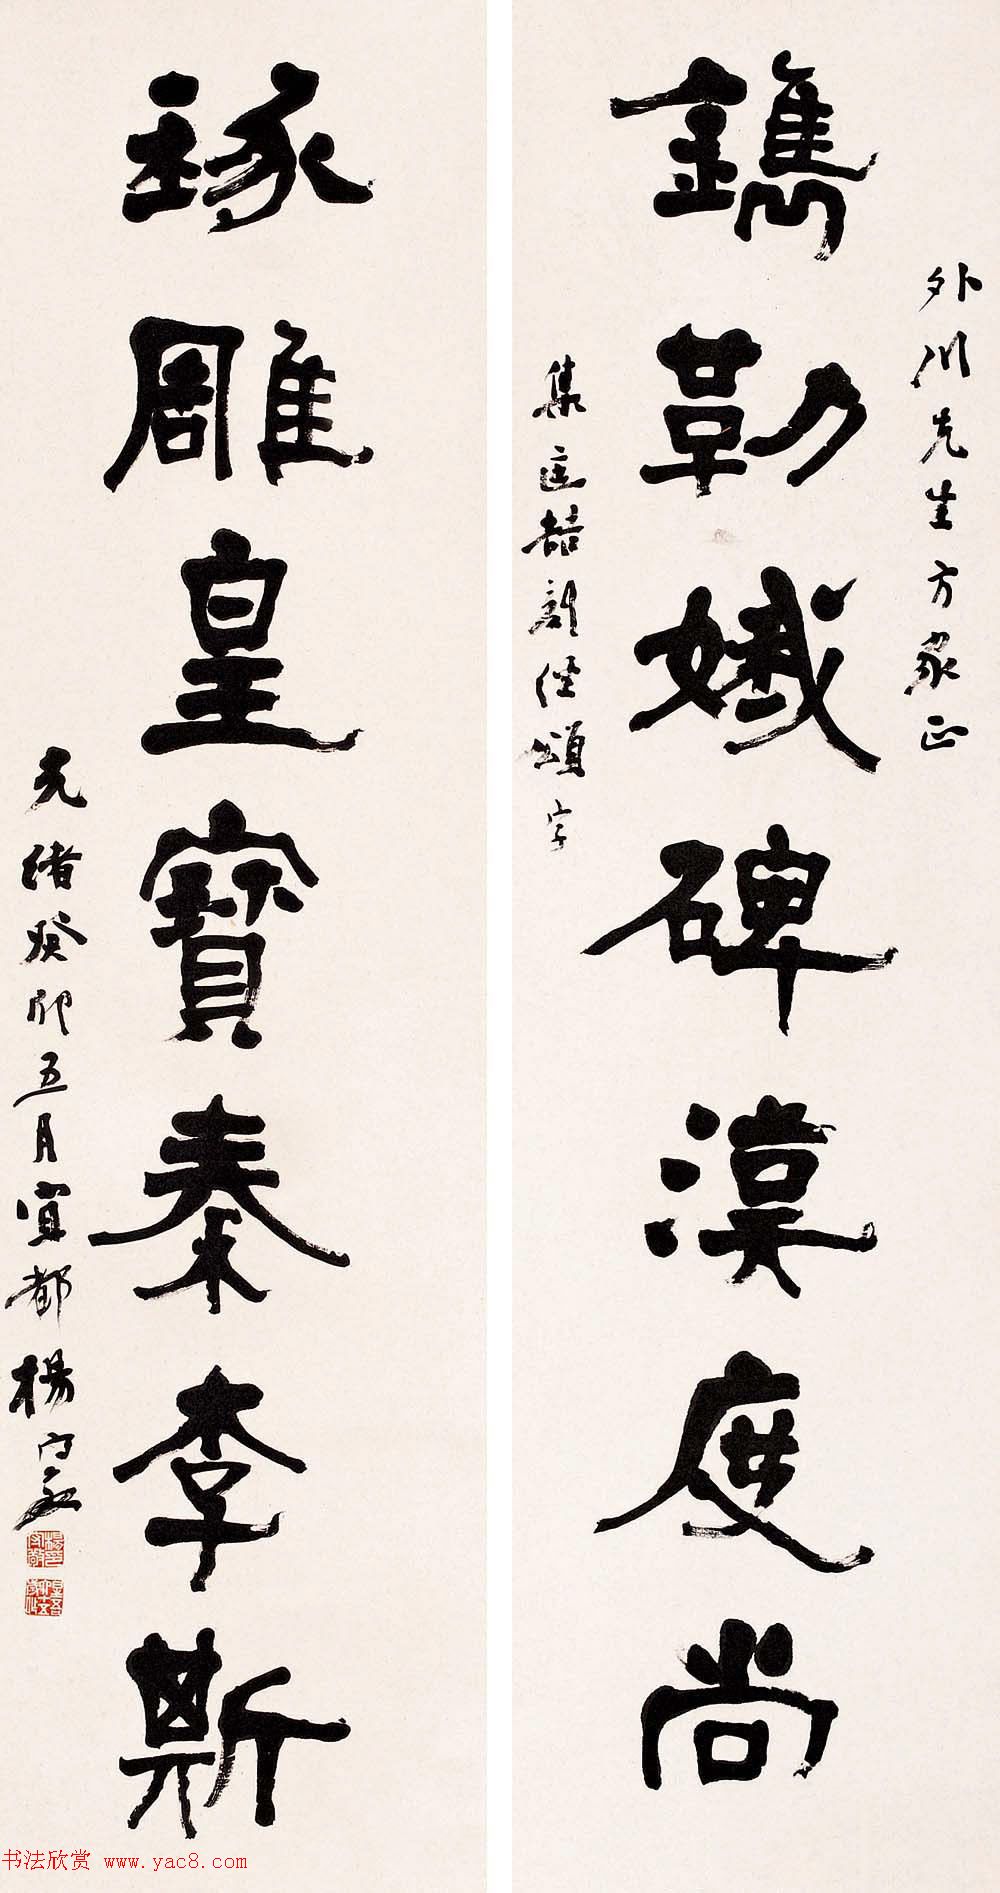 外川先生方家正
鐫勒娥碑漢度尚
集匡喆刻經頌字
琢雕皇寶秦李斯
光緒癸卯五月宜都楊守敬
书法欣赏 www.yac8.com